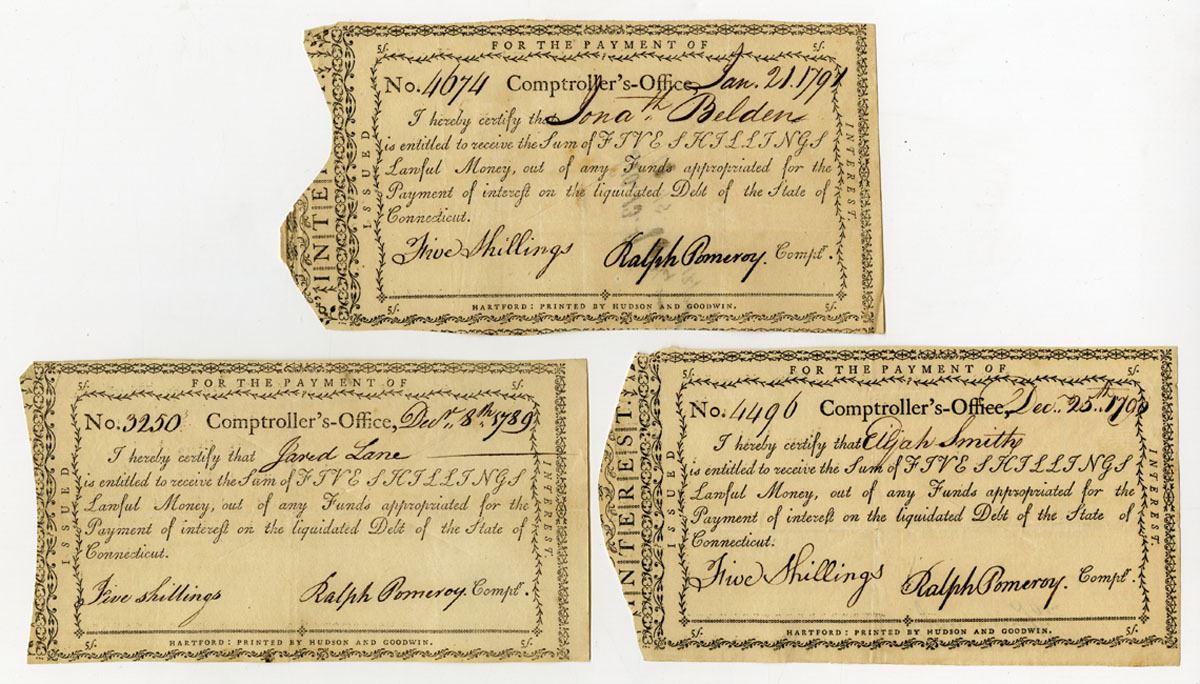 5/. FOR THE PAYMENT OF 5/.
No. 4674 Comptroller's-Office, Jan. 21. 1791
I hereby certify that Jonath. Belden
is entitled to receive the Sum of FIVE SHILLINGS
Lawful Money, out of any Funds appropriated for the
Payment of interest on the liquidated Debt of the State of
Connecticut.
Five Shillings Ralph Pomeroy. Comptr.
5/. HARTFORD: PRINTED BY HUDSON AND GOODWIN. 5/.
ISSUED
INTEREST.
5/. FOR THE PAYMENT OF 5/.
No. 3250 Comptroller's-Office, Decr. 8th. 1789
I hereby certify that Jared Lane
is entitled to receive the Sum of FIVE SHILLINGS
Lawful Money, out of any Funds appropriated for the
Payment of interest on the liquidated Debt of the State of
Connecticut.
Five shillings Ralph Pomeroy Comptr.
5/. HARTFORD: PRINTED BY HUDSON AND GOODWIN. 5/.
ISSUED
INTEREST.
5/. FOR THE PAYMENT OF 5/.
No. 4496 Comptroller's-Office, Decr. 25th. 1790
I hereby certify that Elijah Smith
is entitled to receive the Sum of FIVE SHILLINGS
Lawful Money, out of any Funds appropriated for the
Payment of interest on the liquidated Debt of the State of
Connecticut.
Five Shillings Ralph Pomeroy. Comptr.
5/. HARTFORD: PRINTED BY HUDSON AND GOODWIN. 5/.
INTEREST
ISSUED
INTEREST.